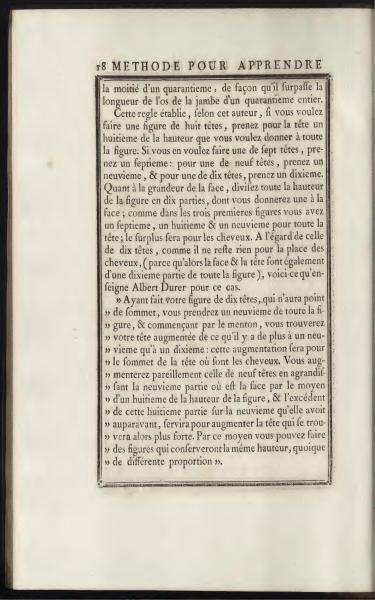 18 METHODE POUR APPRENDRE
la moitié d'un quarantieme, de façon qu'il surpasse la
longueur de l'os de la jambe d'un quarantieme entier.
Cette regle établie, selon cet auteur, si vous voulez
faire une figure de huit têtes, prenez pour la tête un
huitieme de la hauteur que vous voulez donner à toute
la figure. Si vous en voulez faire une de sept têtes, pre-
nez un septieme : pour une de neuf têtes, prenez un
neuvieme, & pour une de dix têtes, prenez un dixieme.
Quant à la grandeur de la face, divisez toute la hauteur
de la figure en dix parties, dont vous donnerez une à la
face ; comme dans les trois premieres figures vous avez
un septieme, un huitieme & un neuvieme pour toute la
tête ; le surplus sera pour les cheveux. A l'égard de celle
de dix têtes, comme il ne reste rien pour la place des
cheveux, (parce qu'alors la face & la tête sont également
d'une dixieme partie de toute la figure), voici ce qu'en-
seigne Albert Durer pour ce cas.
» Ayant fait votre figure de dix têtes, qui n'aura point
» de sommet, vous prendrez un neuvieme de toute la fi-
» gure, & commençant par le menton, vous trouverez
» votre tête augmentée de ce qu'il y a de plus à un neu-
» vieme qu'à un dixieme : cette augmentation sera pour
» le sommet de la tête où sont les cheveux. Vous aug-
» menterez pareillement celle de neuf têtes en agrandis-
» sant la neuvieme partie où est la face par le moyen
» d'un huitieme de la hauteur de la figure, & l'excédent
» de cette huitieme partie sur la neuvieme qu'elle avoit
» auparavant, servira pour augmenter la tête qui se trou-
» vera alors plus forte. Par ce moyen vous pouvez faire
» des figures qui conserveront la même hauteur, quoique
» de différente proportion ».